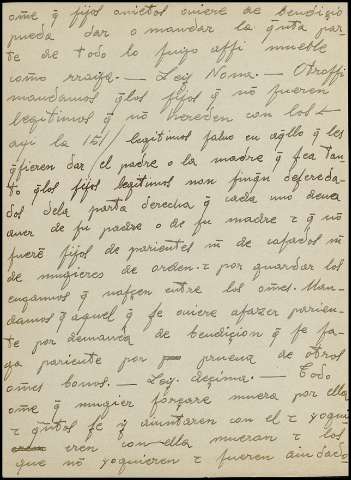 ome q̃ fijos ouietos ouiere de bendiçio
pueda dar o mandar la q̃nta par-
te de todo lo suyo assi mueble
como rrayz. — Ley Nona. — Otrossi
mandamos q̃los fijos q̃ nõ fueren
legitimos q̃ nõ hereden con los
aqui la 151/ legitimos saluo en aq̃llo q̃ les
q̃sieren dar el padre o la madre q̃ sea tan-
to q̃los fijos legitimos non finq̃n dsereda-
dos dela parte derecha q̃ cada uno deue
auer de su padre o de su madre τ q̃ nõ
fuerẽ fijos de parientes nĩ de casados nĩ
de mugieres de orden. τ por guardar los
engannos q̃ nasçen entre los omẽs. Man-
damos q̃ aquel q̃ se ouiere afazer parien-
te por demanda de bendiçion q̃ se fa-
ga pariente por prueua de otros
omẽs bonos. — Ley. deçima. — Todo
ome q̃ mugier forçare muera por ella
τ q̃ntos se y aiuntaren con el τ yoguie
eren con ella mueran τ los
que nõ yoguieren τ fueren aiudado